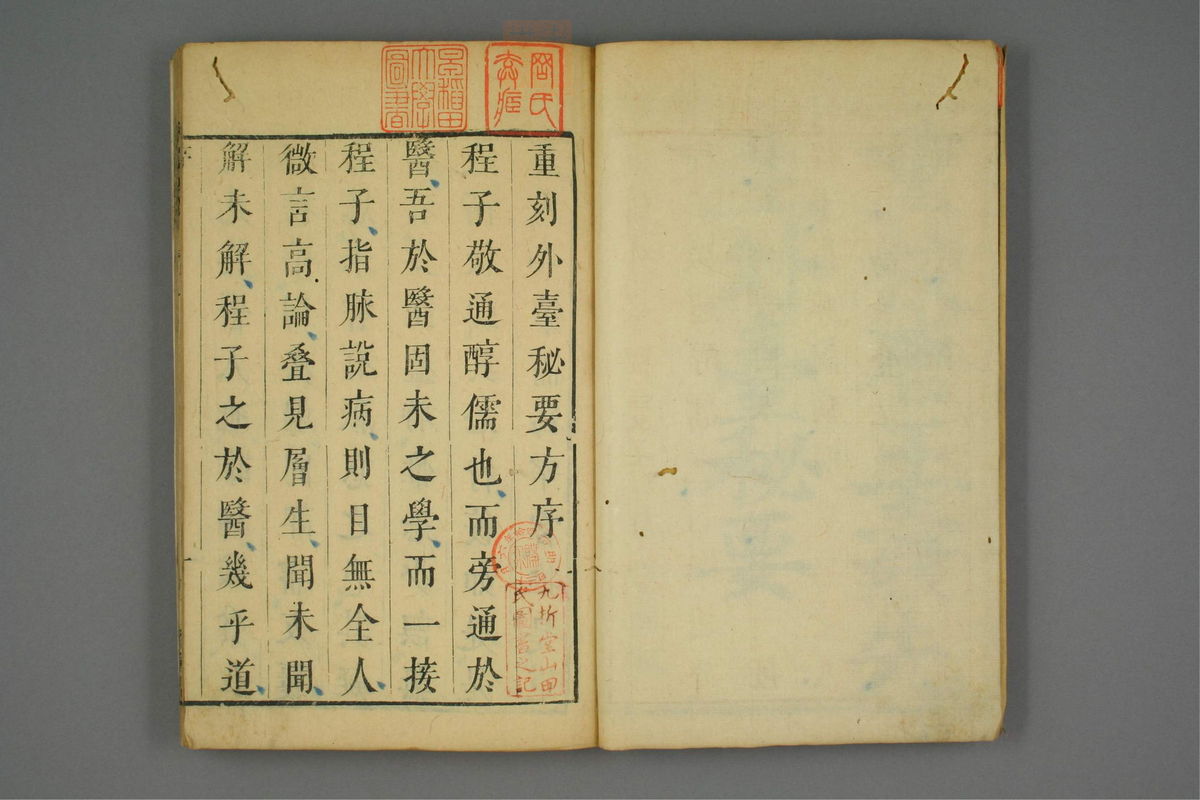 重刻外臺秘要方序
程子敬通醇儒也而旁通於
醫吾於醫固未之學而一接
程子指脉說病則目無全人
微言高論叠見層生聞未聞
解未解程子之於醫幾乎道
早稲田
大學
圖書
九折堂山田
氏圖書之記